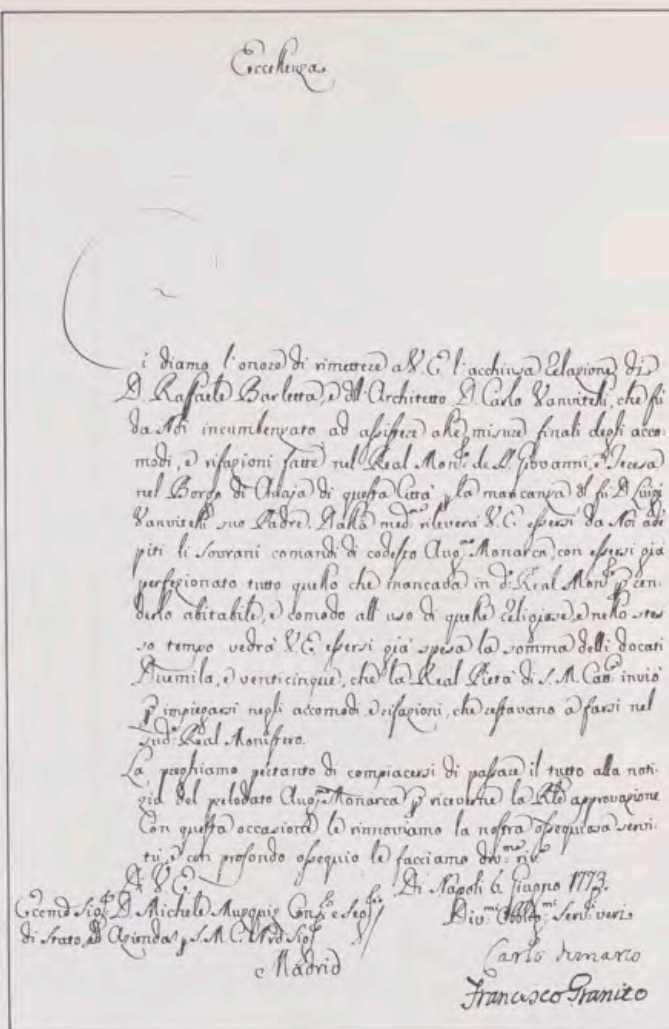 Eccellenza
Ci diamo l'onore di rimettere a V.E. l'acchiusa Relazione di
D. Raffaele Barletta, e dell'Architetto D. Carlo Vanvitelli, che fù
da Noi incumbenzato ad assistere alle misure finali degli acco-
modi, e rifazioni fatte nel Real Mon.ro de S. Giovanni, e Teresa
nel Borgo di Chiaja di questa Città p la mancanza del fù D. Luigi
Vanvitelli suo Padre. Dalla med.ma rileverà V.E. essersi da Noi adem
piti li Sovrani comandi di codesto Aug.mo Monarca, con essersi già
perfezionato tutto quello che mancava in d.o Real Mon.ro p ren-
derlo abitabile, e comodo all'uso di quelle Religiose, e nello stes
so tempo vedrà V.E. essersi già spesa la somma delli docati
Duemila, e venticinque, che la Real Pietà di S.M. Catt.ca inviò
p impiegarsi negli accomodi e rifazioni, che restavano a farsi nel
sud.o Real Monistero.
La preghiamo pertanto di compiacersi di passare il tutto alla noti-
zia del prelodato Aug.mo Monarca p riceverne la Rle approvazione
Con questa occasione le rinnoviamo la nostra ossequiosa servi-
tù, e con profondo ossequio le facciamo div.ma riv.za
D. V.E.
Di Napoli 6. Giugno 1773.
Eccmo Sig.r D. Michele Muzquiz Cons.re e Seg.rio
di Stato, ed Azienda p S.M.C.
Madrid
Div.mi Obblig.mi Serv.ri veri
Carlo Demarco
Francesco Granito